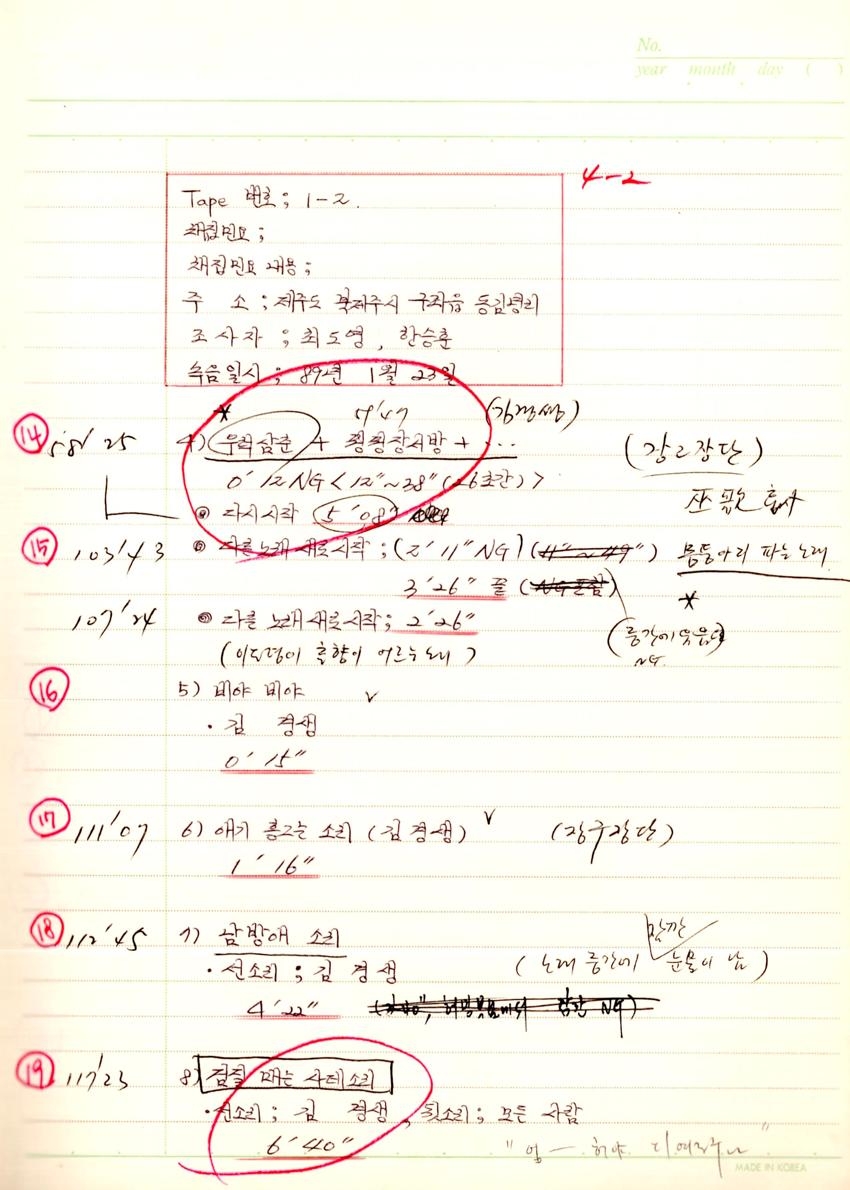 No.
year month day ( )
4-2
Tape 번호; 1-2.
채집민요;
채집민요 내용;
주 소; 제주도 북제주시 구좌읍 동김녕리
조사자 ; 최도영, 한승훈
녹음일시; 89년 1월 23일
(김경생)
⑭ 58' 25 4) 우리삼춘 + 정정장서방 + ··· (장고장단)
0' 12 NG < 12" ~ 38" (26초간) >
◎ 다시시작 5' 08"
⑮ 103' 43 ◎ 다른노래 새로시작; (2' 11" NG) 몸둥아리 파는노래
3' 26" 끝
107' 24 ◎ 다른 노래 새로시작; 2' 26" (중간에 웃음
NG.
⑯ 5) 비야 비야
· 김 경생
0' 15"
⑰ 111' 07 6) 애기 흥그는 소리 (김경생) (장구장단)
1' 16"
⑱ 112' 45 7) 삼방애 소리 잠깐
· 선소리; 김 경생 (노래 중간에 눈물이 남)
4' 22"
⑲ 117' 23 8) 검질 매는 사데소리
· 선소리; 김 경생, 훗소리; 모든 사람
6' 40"
MADE IN KOREA